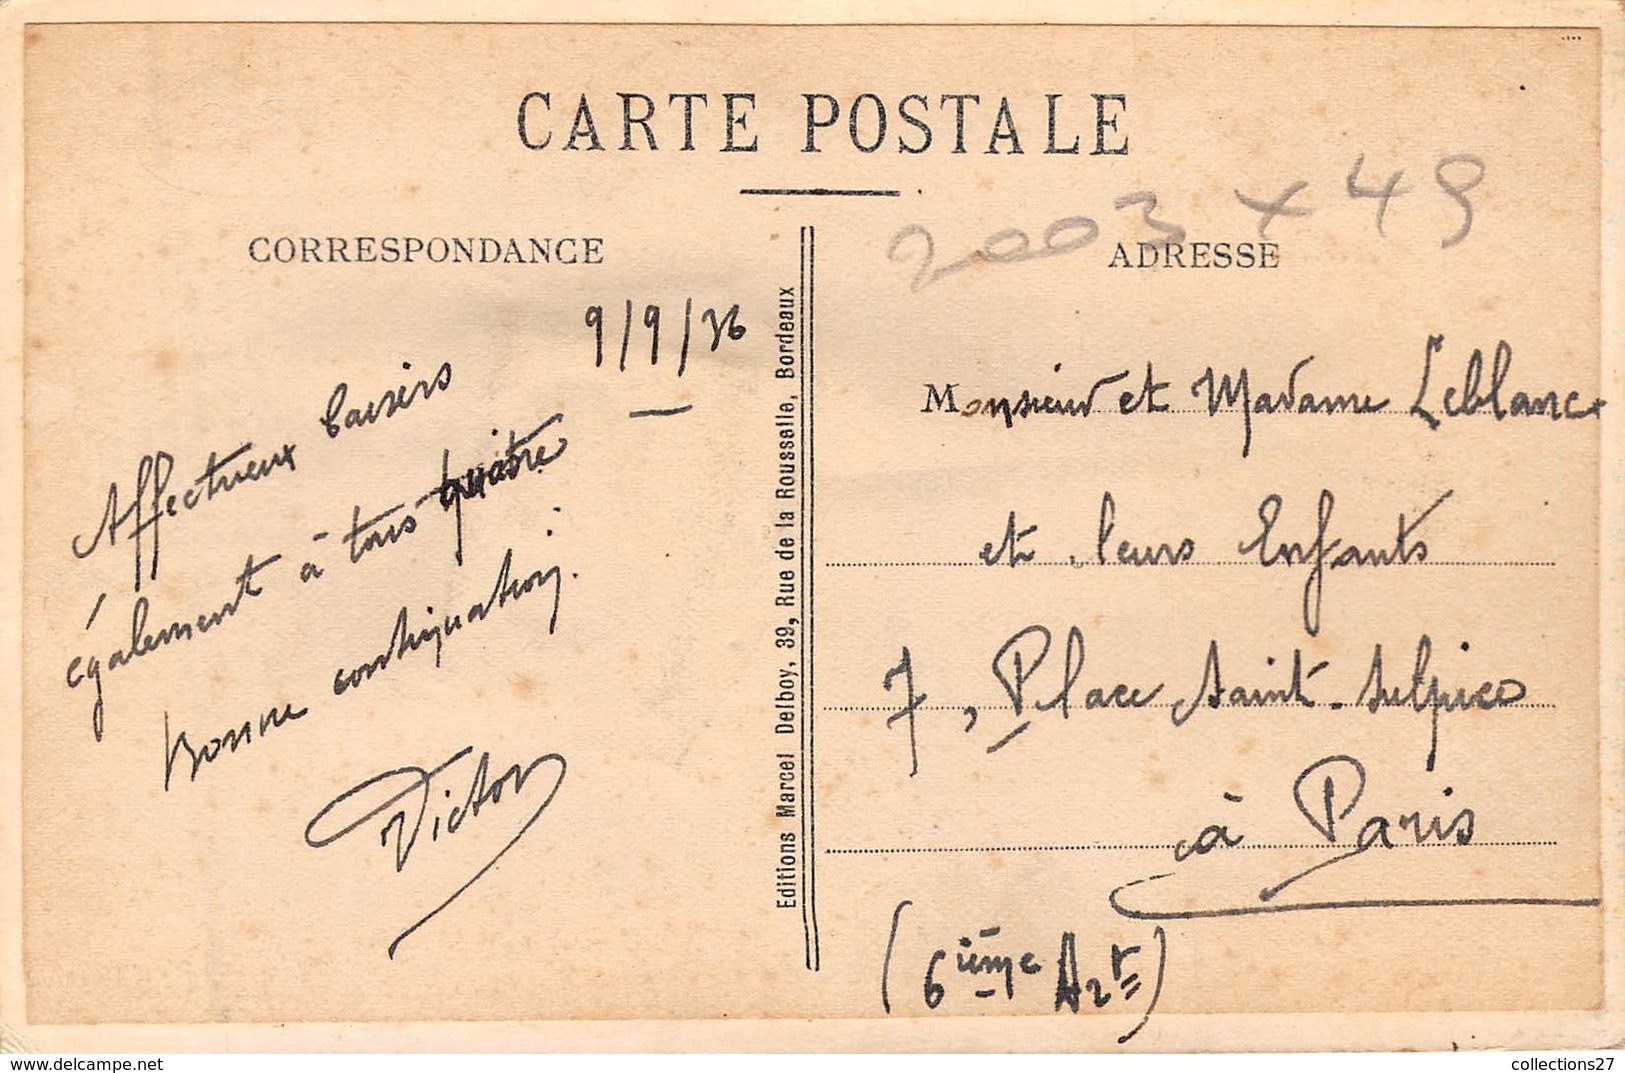 CARTE POSTALE
2003 x 49
CORRESPONDANCE
9/9/36
Affectueux baisers
également à tous quatre
Bonne continuation.
Victor
Editions Marcel Delboy, 39, Rue de la Rousselle, Bordeaux
ADRESSE
Monsieur et Madame Leblanc
et leurs Enfants
7, Place Saint-Sulpice
à Paris
(6ième Art)
www.delcampe.net
collections27